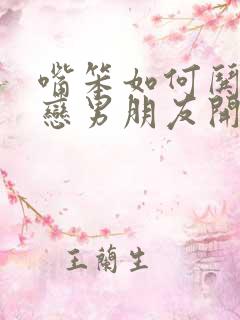 嘴笨如何
戀男朋友開
王蘭生